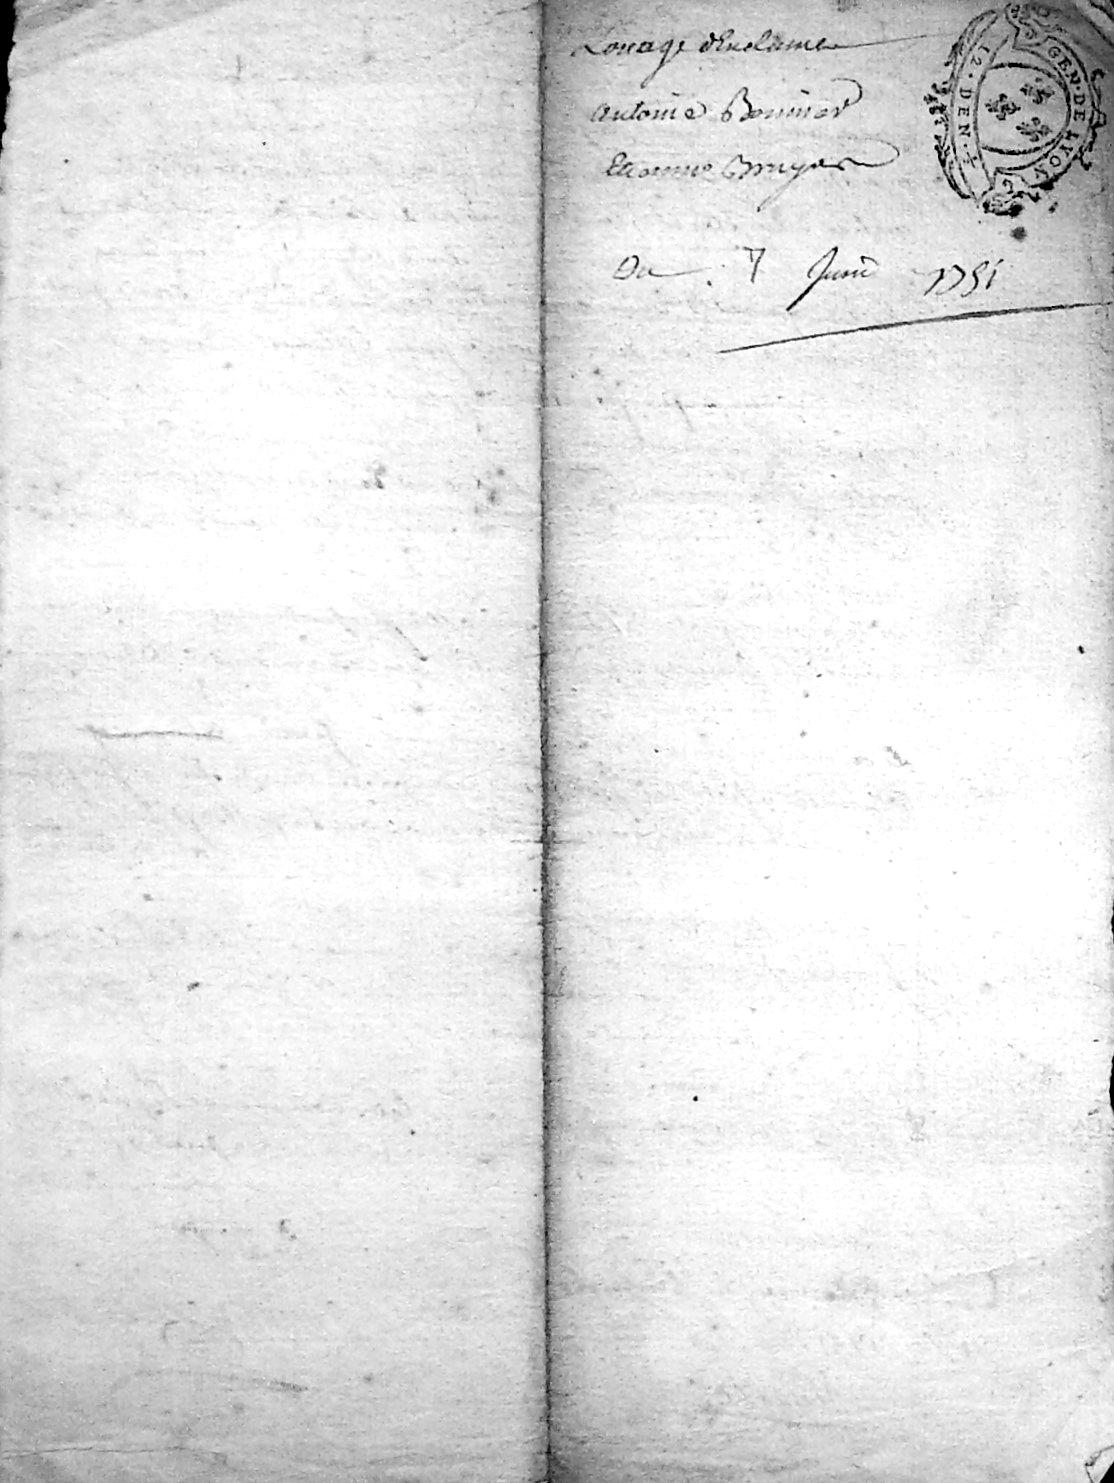 Louage d'Enclume
Antoine Bonnier
Etienne Bruyer
Du 7 Juin 1751
GEN. DE LYON
12. DEN. T